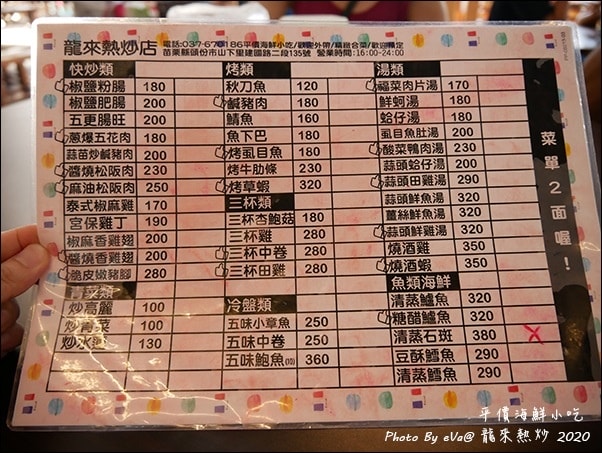 龍來熱炒店
電話:037-670186平價海鮮小吃/歡迎外帶/精緻合菜/歡迎預定
苗栗縣頭份市山下里建國路二段135號 營業時間:16:00-24:00
快炒類
椒鹽粉腸 180
椒鹽肥腸 200
五更腸旺 200
蔥爆五花肉 180
蒜苗炒鹹豬肉 200
醬燒松阪肉 230
麻油松阪肉 250
泰式椒麻雞 170
宮保雞丁 190
椒麻香雞翅 200
醬燒香雞翅 200
脆皮嫩豬腳 280
青菜類
炒高麗 100
炒青菜 100
炒水蓮 130
烤類
秋刀魚 120
鹹豬肉 180
鯖魚 160
魚下巴 180
烤虱目魚 180
烤牛肋條 230
烤草蝦 320
三杯類
三杯杏鮑菇 180
三杯雞 280
三杯中卷 280
三杯田雞 280
冷盤類
五味小章魚 250
五味中卷 250
五味鮑魚 360
湯類
福菜肉片湯 170
鮮蚵湯 180
蛤仔湯 180
虱目魚肚湯 200
酸菜鴨肉湯 230
蒜頭蛤仔湯 200
蒜頭田雞湯 290
蒜頭鮮魚湯 320
薑絲鮮魚湯 320
蒜頭鮮雞湯 320
燒酒雞 350
燒酒蝦 350
魚類海鮮
清蒸鱸魚 320
糖醋鱸魚 320
清蒸石斑 380
豆酥鱈魚 290
清蒸鱈魚 290
菜單2面喔！
平價海鮮小吃
Photo By eVa@ 龍來熱炒 2020